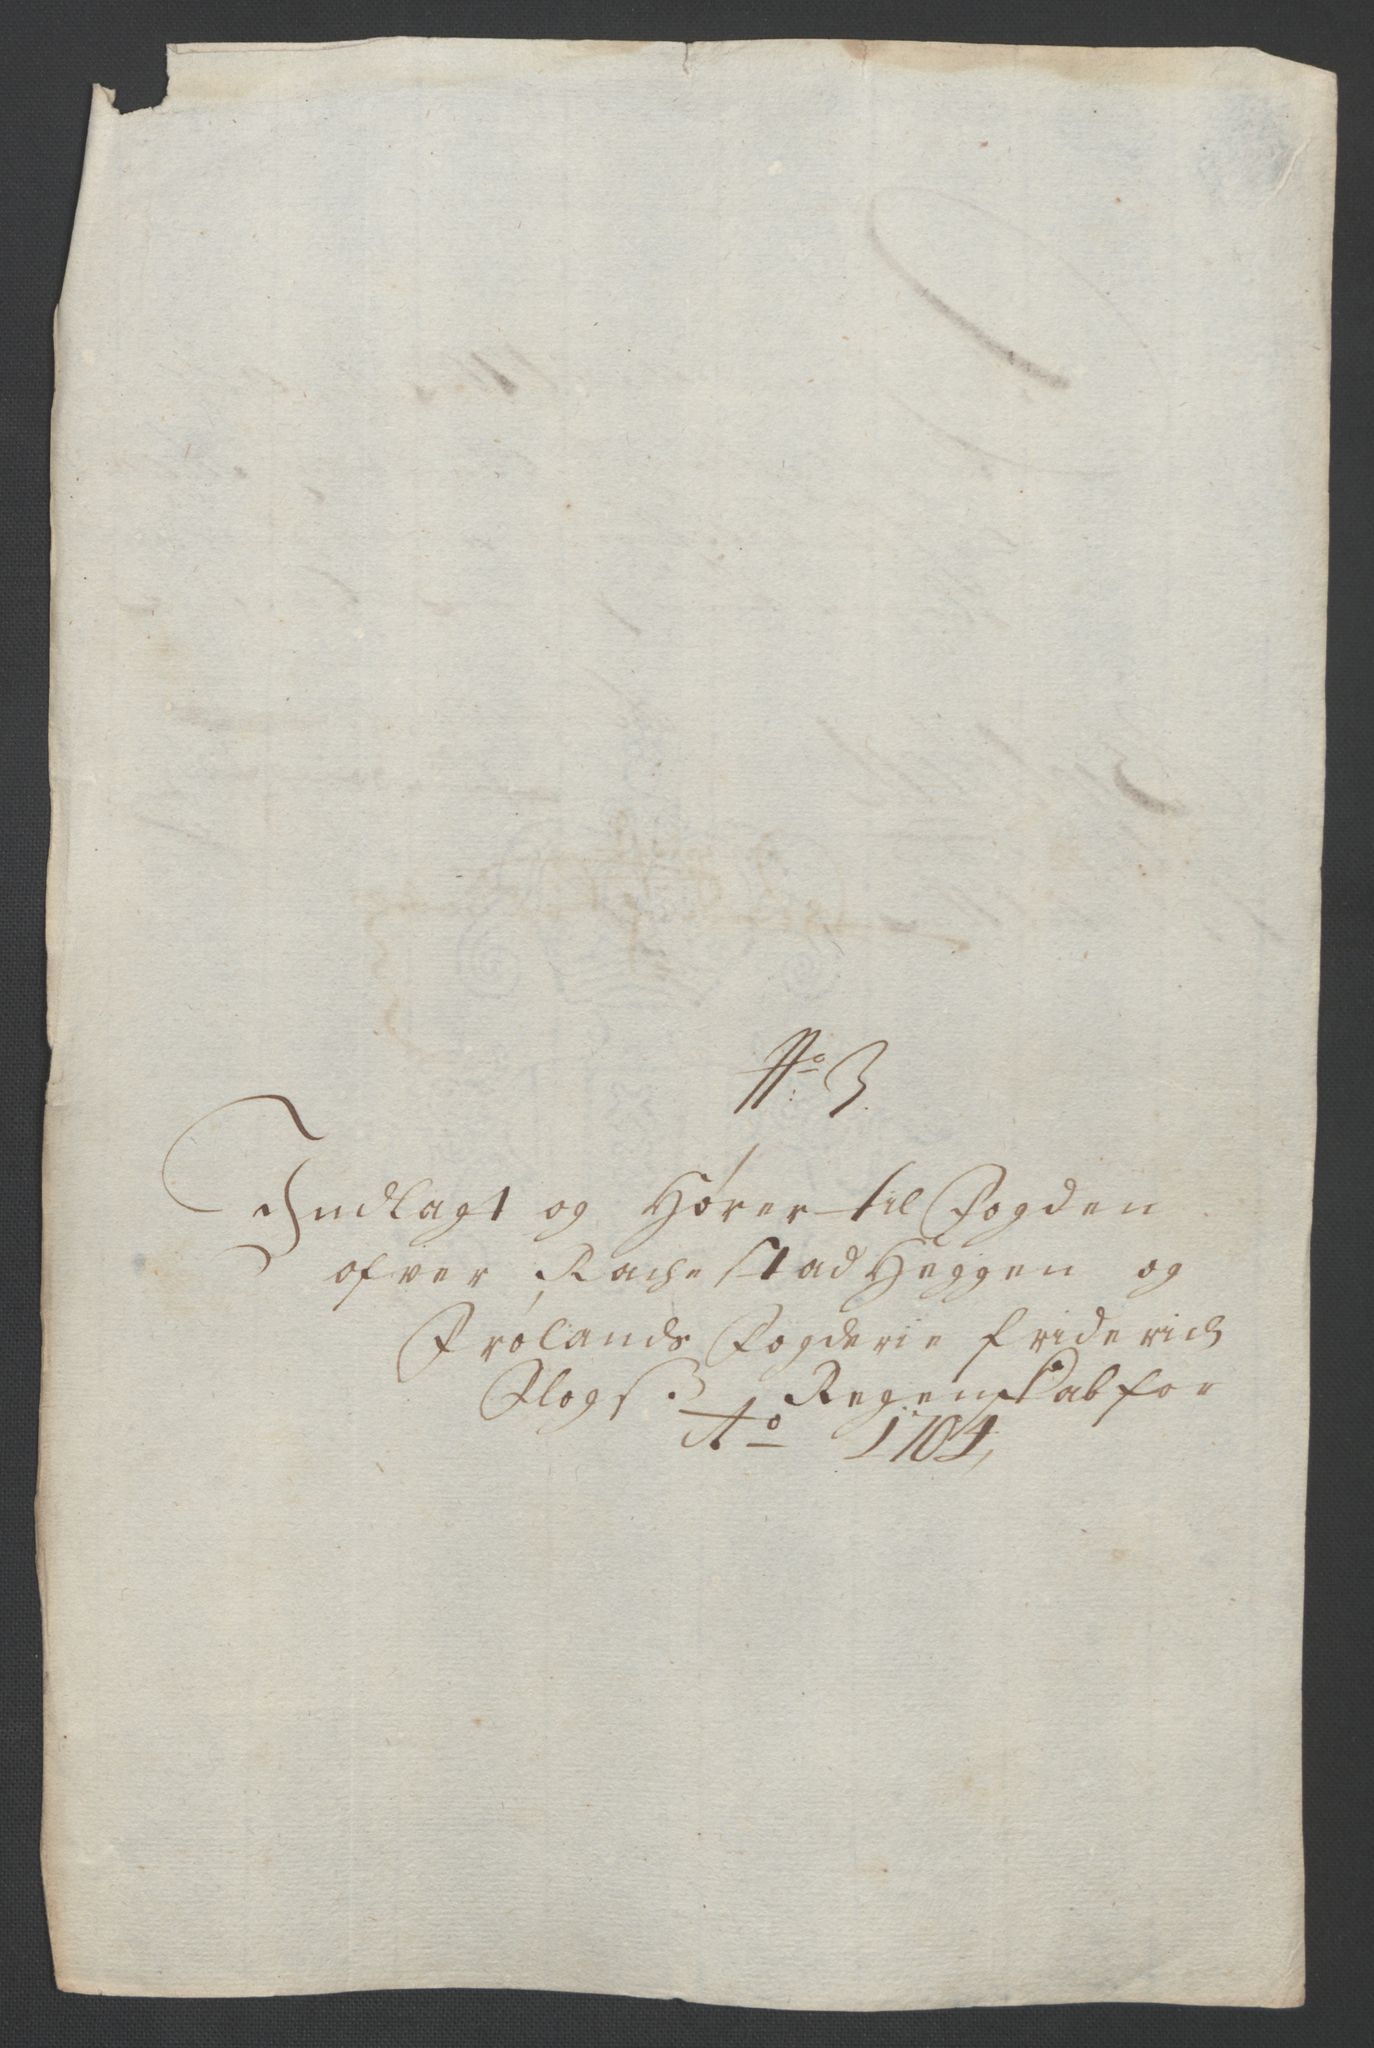 No: 3.
Indlagt og Hører til Fogden
ofver Rachestad Heggen og
Frølands Fogderie Friderich
Flogs: Regenskab for
Ao 1704,